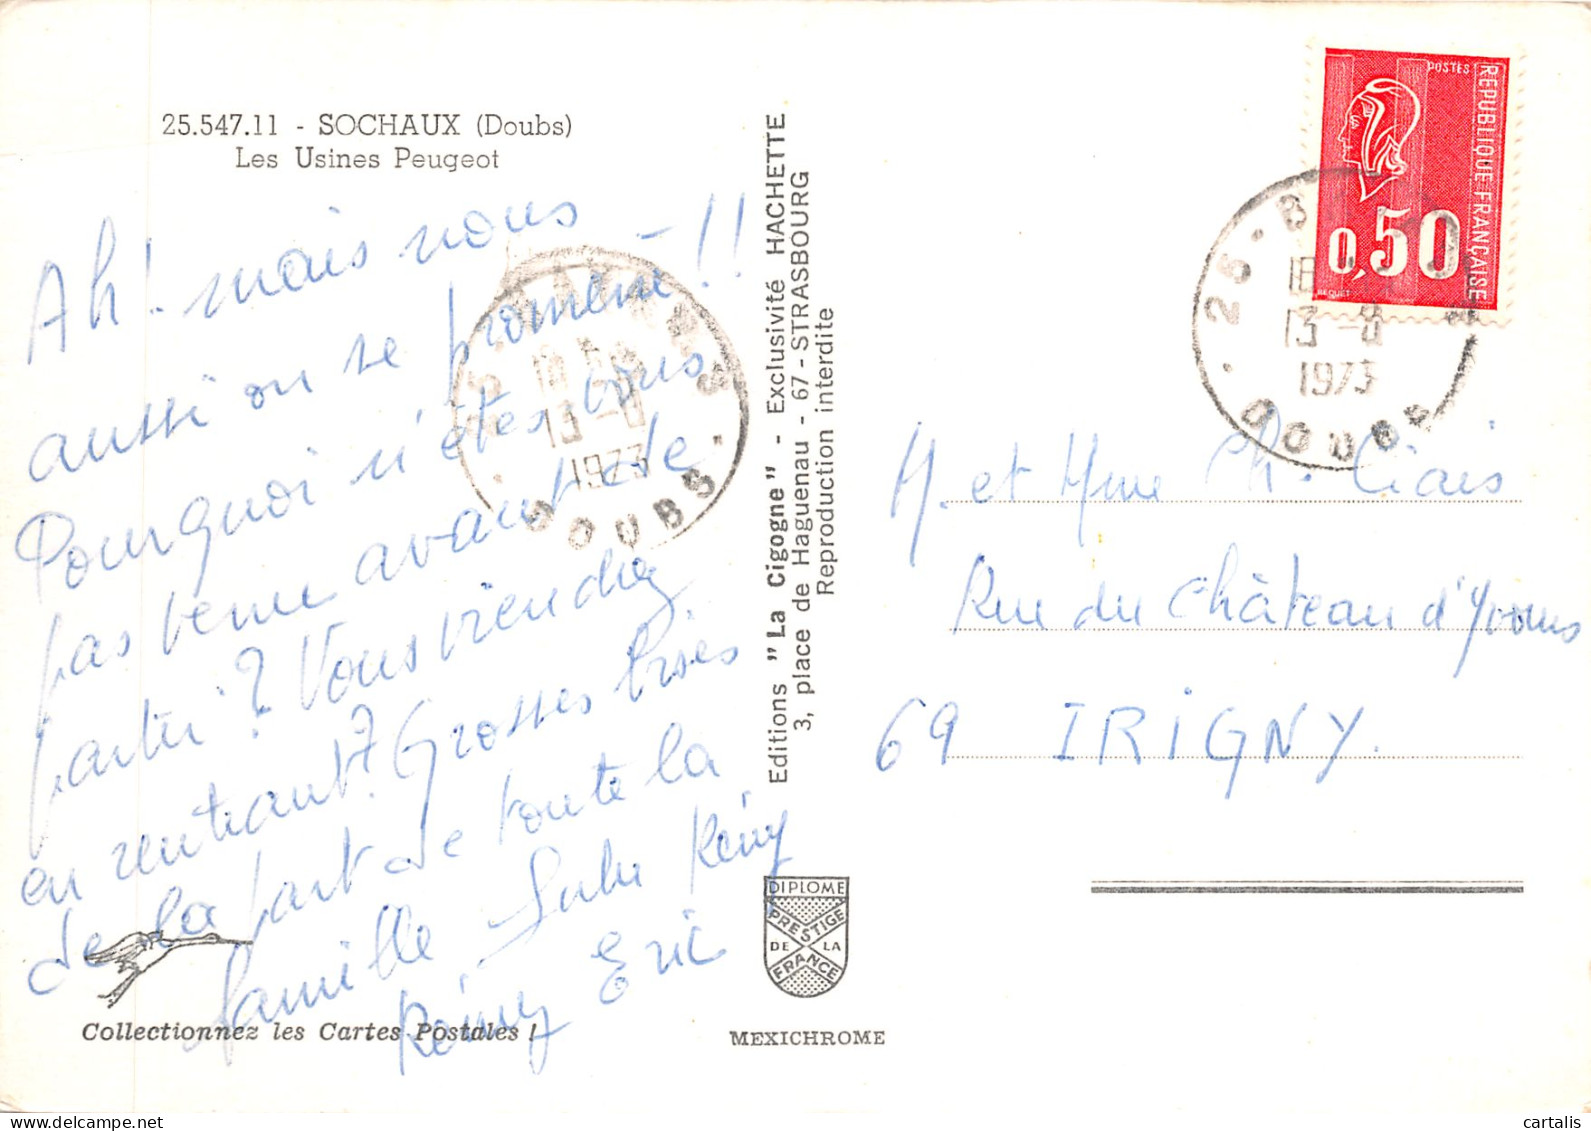 25.547.11 - SOCHAUX (Doubs)
Les Usines Peugeot
Ah! mais nous
aussi on se promène!!
Pourquoi n'êtes vous
pas venu avant de
partir? Vous viendrez
en rentrant? Grosses bises
de la part de toute la
famille Rémy
Rémy Eric
Collectionnez les Cartes Postales !
Editions "La Cigogne" - Exclusivité HACHETTE
3, place de Haguenau - 67 - STRASBOURG
Reproduction interdite
DIPLOME
PRESTIGE
DE LA
FRANCE
MEXICHROME
POSTES
REPUBLIQUE FRANÇAISE
0,50
BEQUET
25
13-8
1973
DOUBS
13-8
1973
DOUBS
M. et Mme Ch. Ciais
Rue du Château d'Yvours
69 IRIGNY.
cartalis
www.delcampe.net